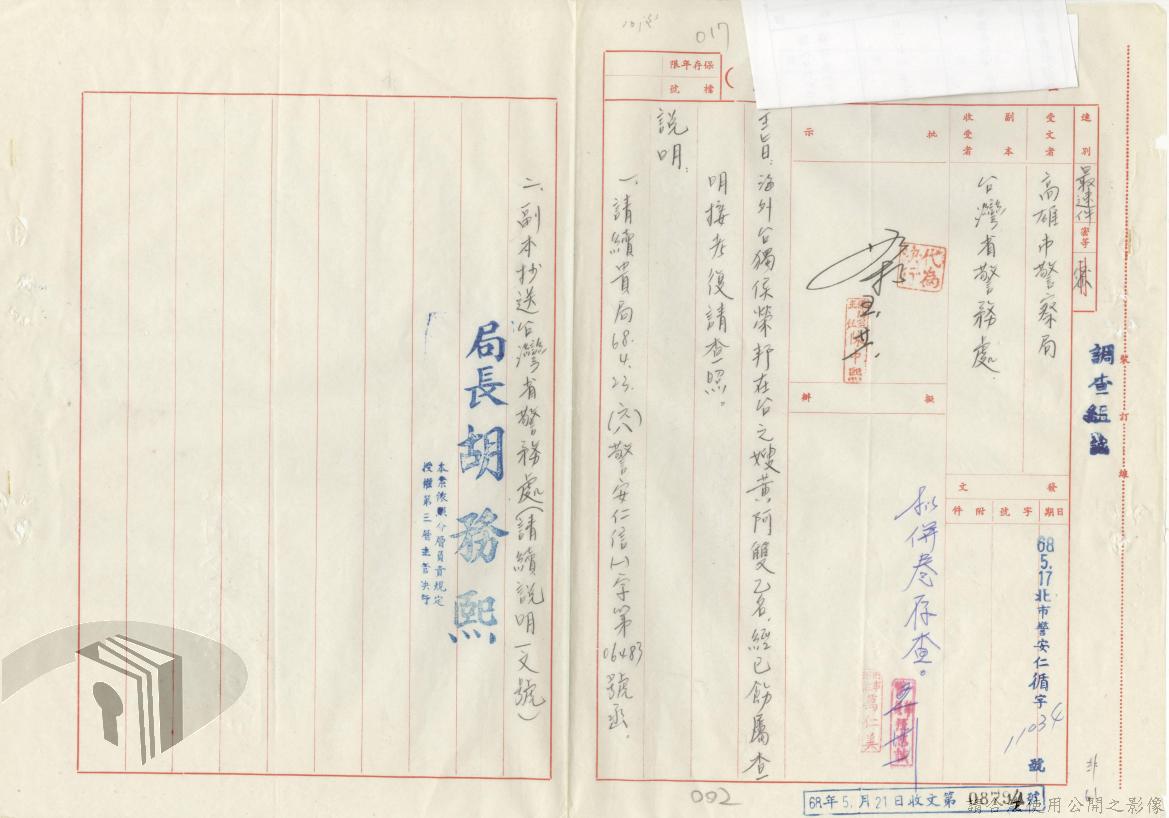 調查組
裝
訂
線
速別
最速件
密等
受文者
高雄市警察局
副本
收受者
台灣省警務處
發文
日期
字號
附件
68 5.17
北市警安仁循字
11034
號
批示
代為決行
擬辦
拟併卷存查。
保存年限
檔號
017
主旨：海外台獨侯榮邦在台之嫂黃阿雙乙名，經已飭屬查
明接卷後請查照。
說明：
一、請續貴局68.4.23.(六八)警安仁信(一)字第06483號函。
二、副本抄送台灣省警務處(請續說明一文號)
局長胡務熙
本案依照分層負責規定
授權第三層主管決行
002
68年5.月21日收文第08794號
請合法使用公開之影像